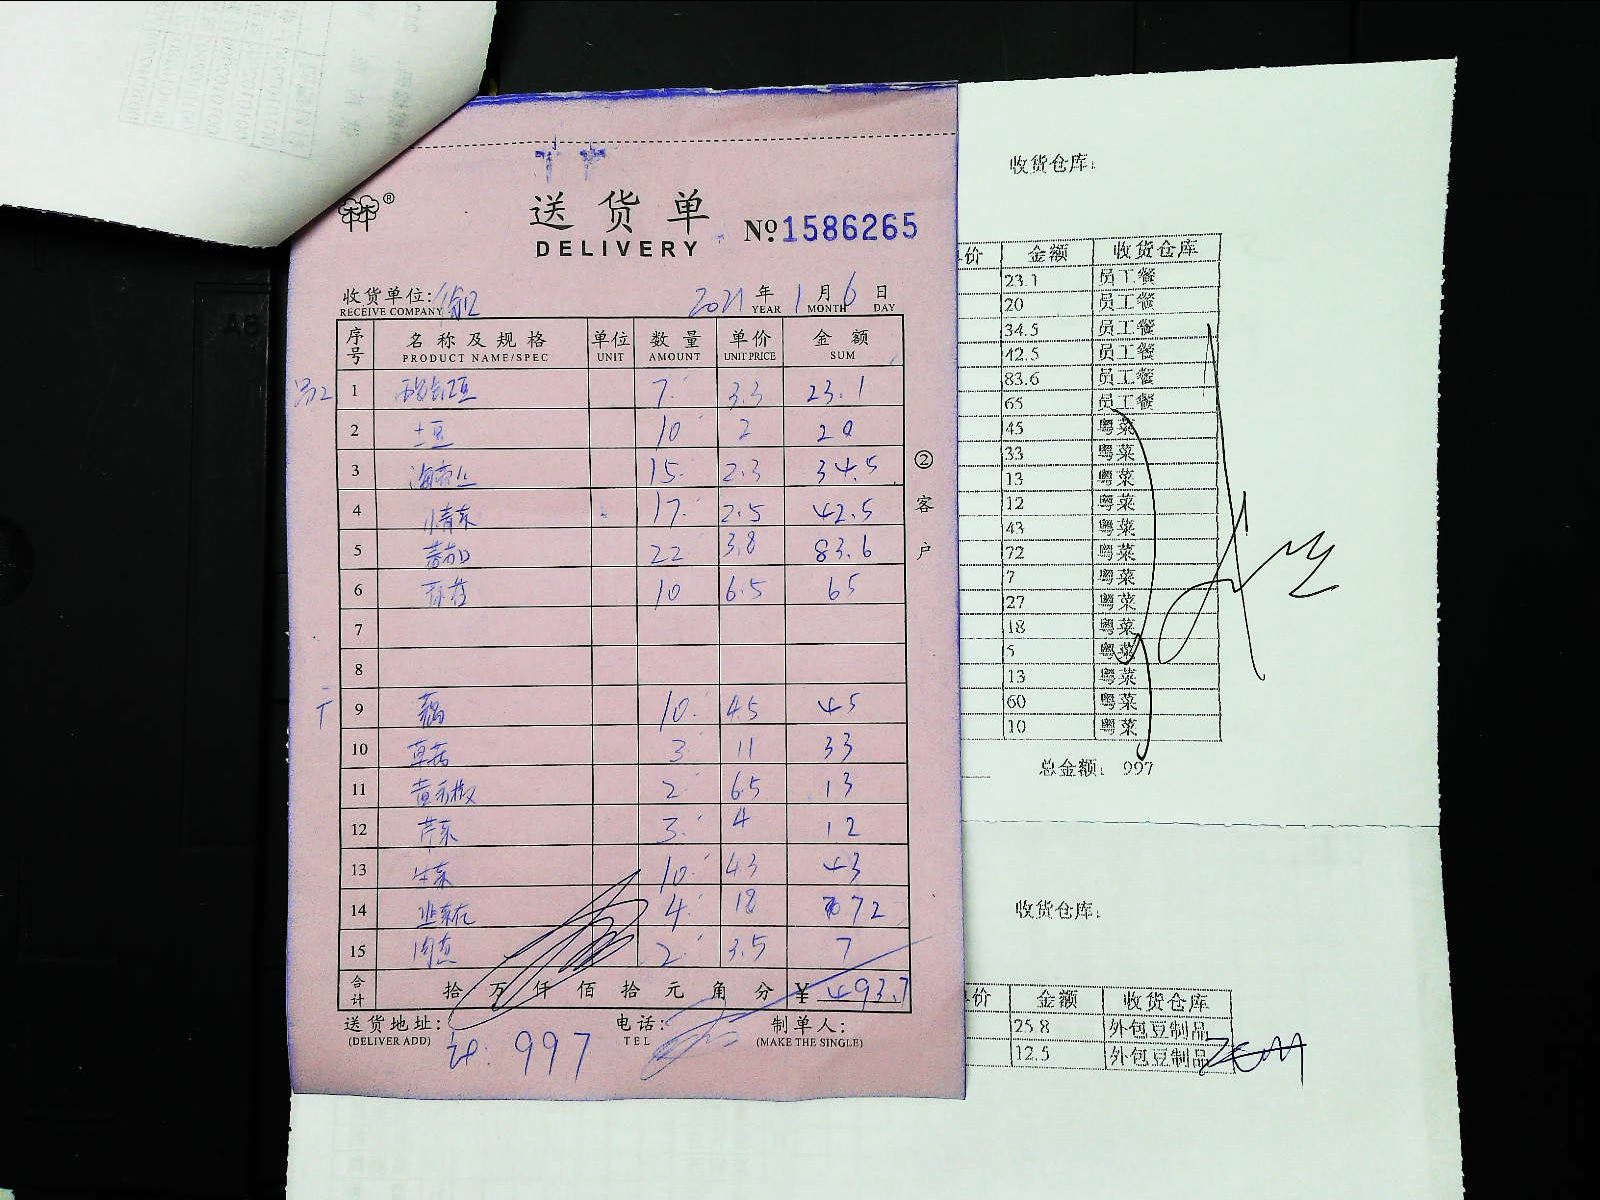 送货单
DELIVERY
№1586265
收货单位:
2021 年 1 月 6 日
RECEIVE COMPANY YEAR MONTH DAY
序号 名称及规格 单位 数量 单价 金额
PRODUCT NAME/SPEC UNIT AMOUNT UNIT PRICE SUM
1 7 3.3 23.1
2 土豆 10 2 20
3 海带丝 15 2.3 34.5
4 小青菜 17 2.5 42.5
5 蕃茄 22 3.8 83.6
6 10 6.5 65
7
8
9 藕 10 4.5 45
10 草菇 3 11 33
11 黄彩椒 2 6.5 13
12 芹菜 3 4 12
13 生菜 10 4.3 43
14 韭菜花 4 18 72
15 2 3.5 7
合计 拾 万 仟 佰 拾 元 角 分 ¥ 493.7
送货地址: 电话: 制单人:
(DELIVER ADD) TEL (MAKE THE SINGLE)
997
②客户
收货仓库:
价 金额 收货仓库
23.1 员工餐
20 员工餐
34.5 员工餐
42.5 员工餐
83.6 员工餐
65 员工餐
45 粤菜
33 粤菜
13 粤菜
12 粤菜
43 粤菜
72 粤菜
7 粤菜
27 粤菜
18 粤菜
5 粤菜
13 粤菜
60 粤菜
10 粤菜
总金额: 997
收货仓库:
价 金额 收货仓库
25.8 外包豆制品
12.5 外包豆制品